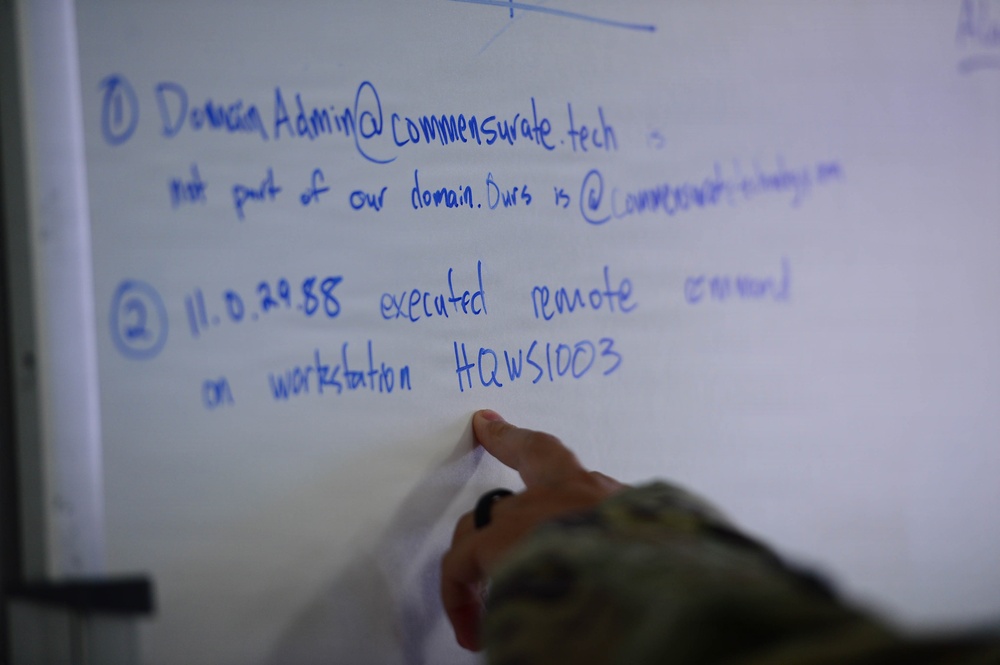 ① DomainAdmin@commensurate.tech is
not part of our domain. Ours is @commensuratetechnology.com
② 11.0.29.88 executed remote command
on workstation HQWS1003